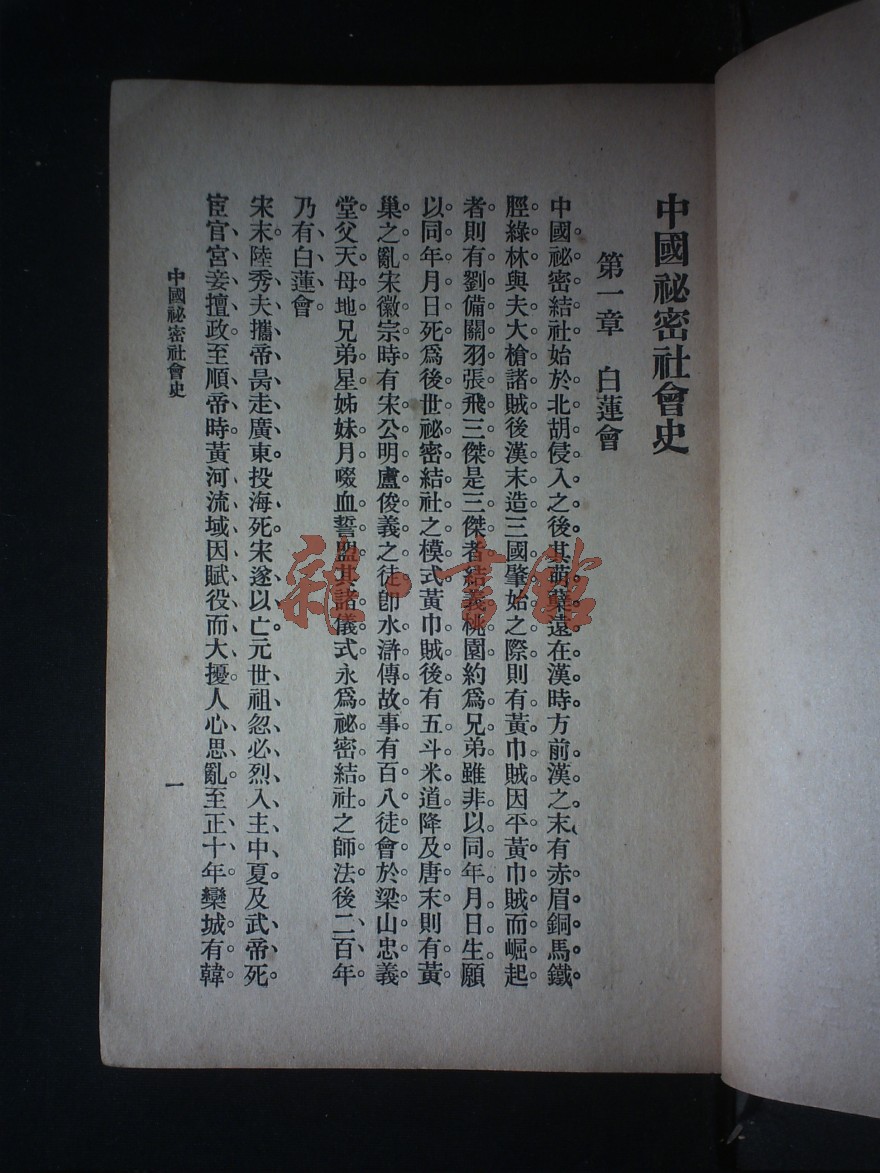 中國祕密社會史
第一章　白蓮會
中國祕密結社始於北胡侵入之後其萌蘖遠在漢時方前漢之末有赤眉銅馬鐵
脛綠林與夫大槍諸賊後漢末造三國肇始之際則有黃巾賊因平黃巾賊而崛起
者則有劉備關羽張飛三傑是三傑者結義桃園約爲兄弟雖非以同年月日生願
以同年月日死爲後世祕密結社之模式黃巾賊後有五斗米道降及唐末則有黃
巢之亂宋徽宗時有宋公明盧俊義之徒卽水滸傳故事有百八徒會於梁山忠義
堂父天母地兄弟星姊妹月啜血誓盟其諸儀式永爲祕密結社之師法後二百年
乃有白蓮會
宋末陸秀夫攜帝昺走廣東投海死宋遂以亡元世祖忽必烈入主中夏及武帝死
宦官宮妾擅政至順帝時黃河流域因賦役而大擾人心思亂至正十年欒城有韓
中國祕密社會史
一
雜·書館